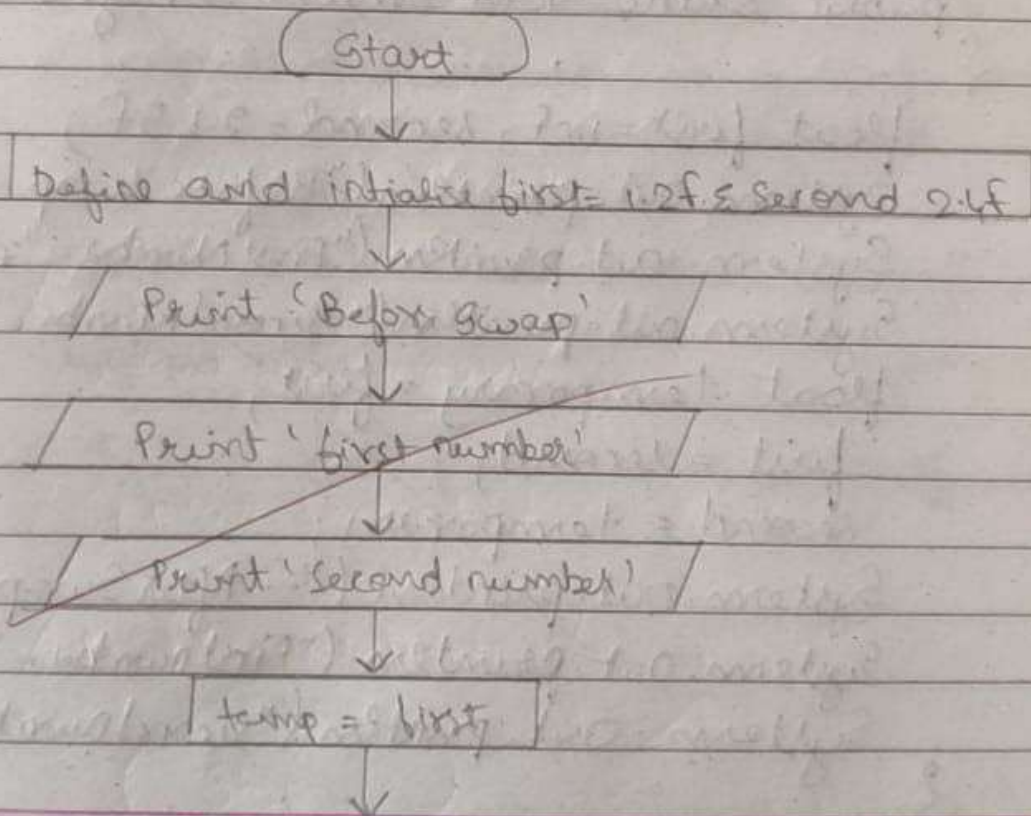 Start
Define and intialise first= 1.2f & Second 2.4f
Print 'Before Swap'
Print 'first number'
Print 'Second number'
temp = first;